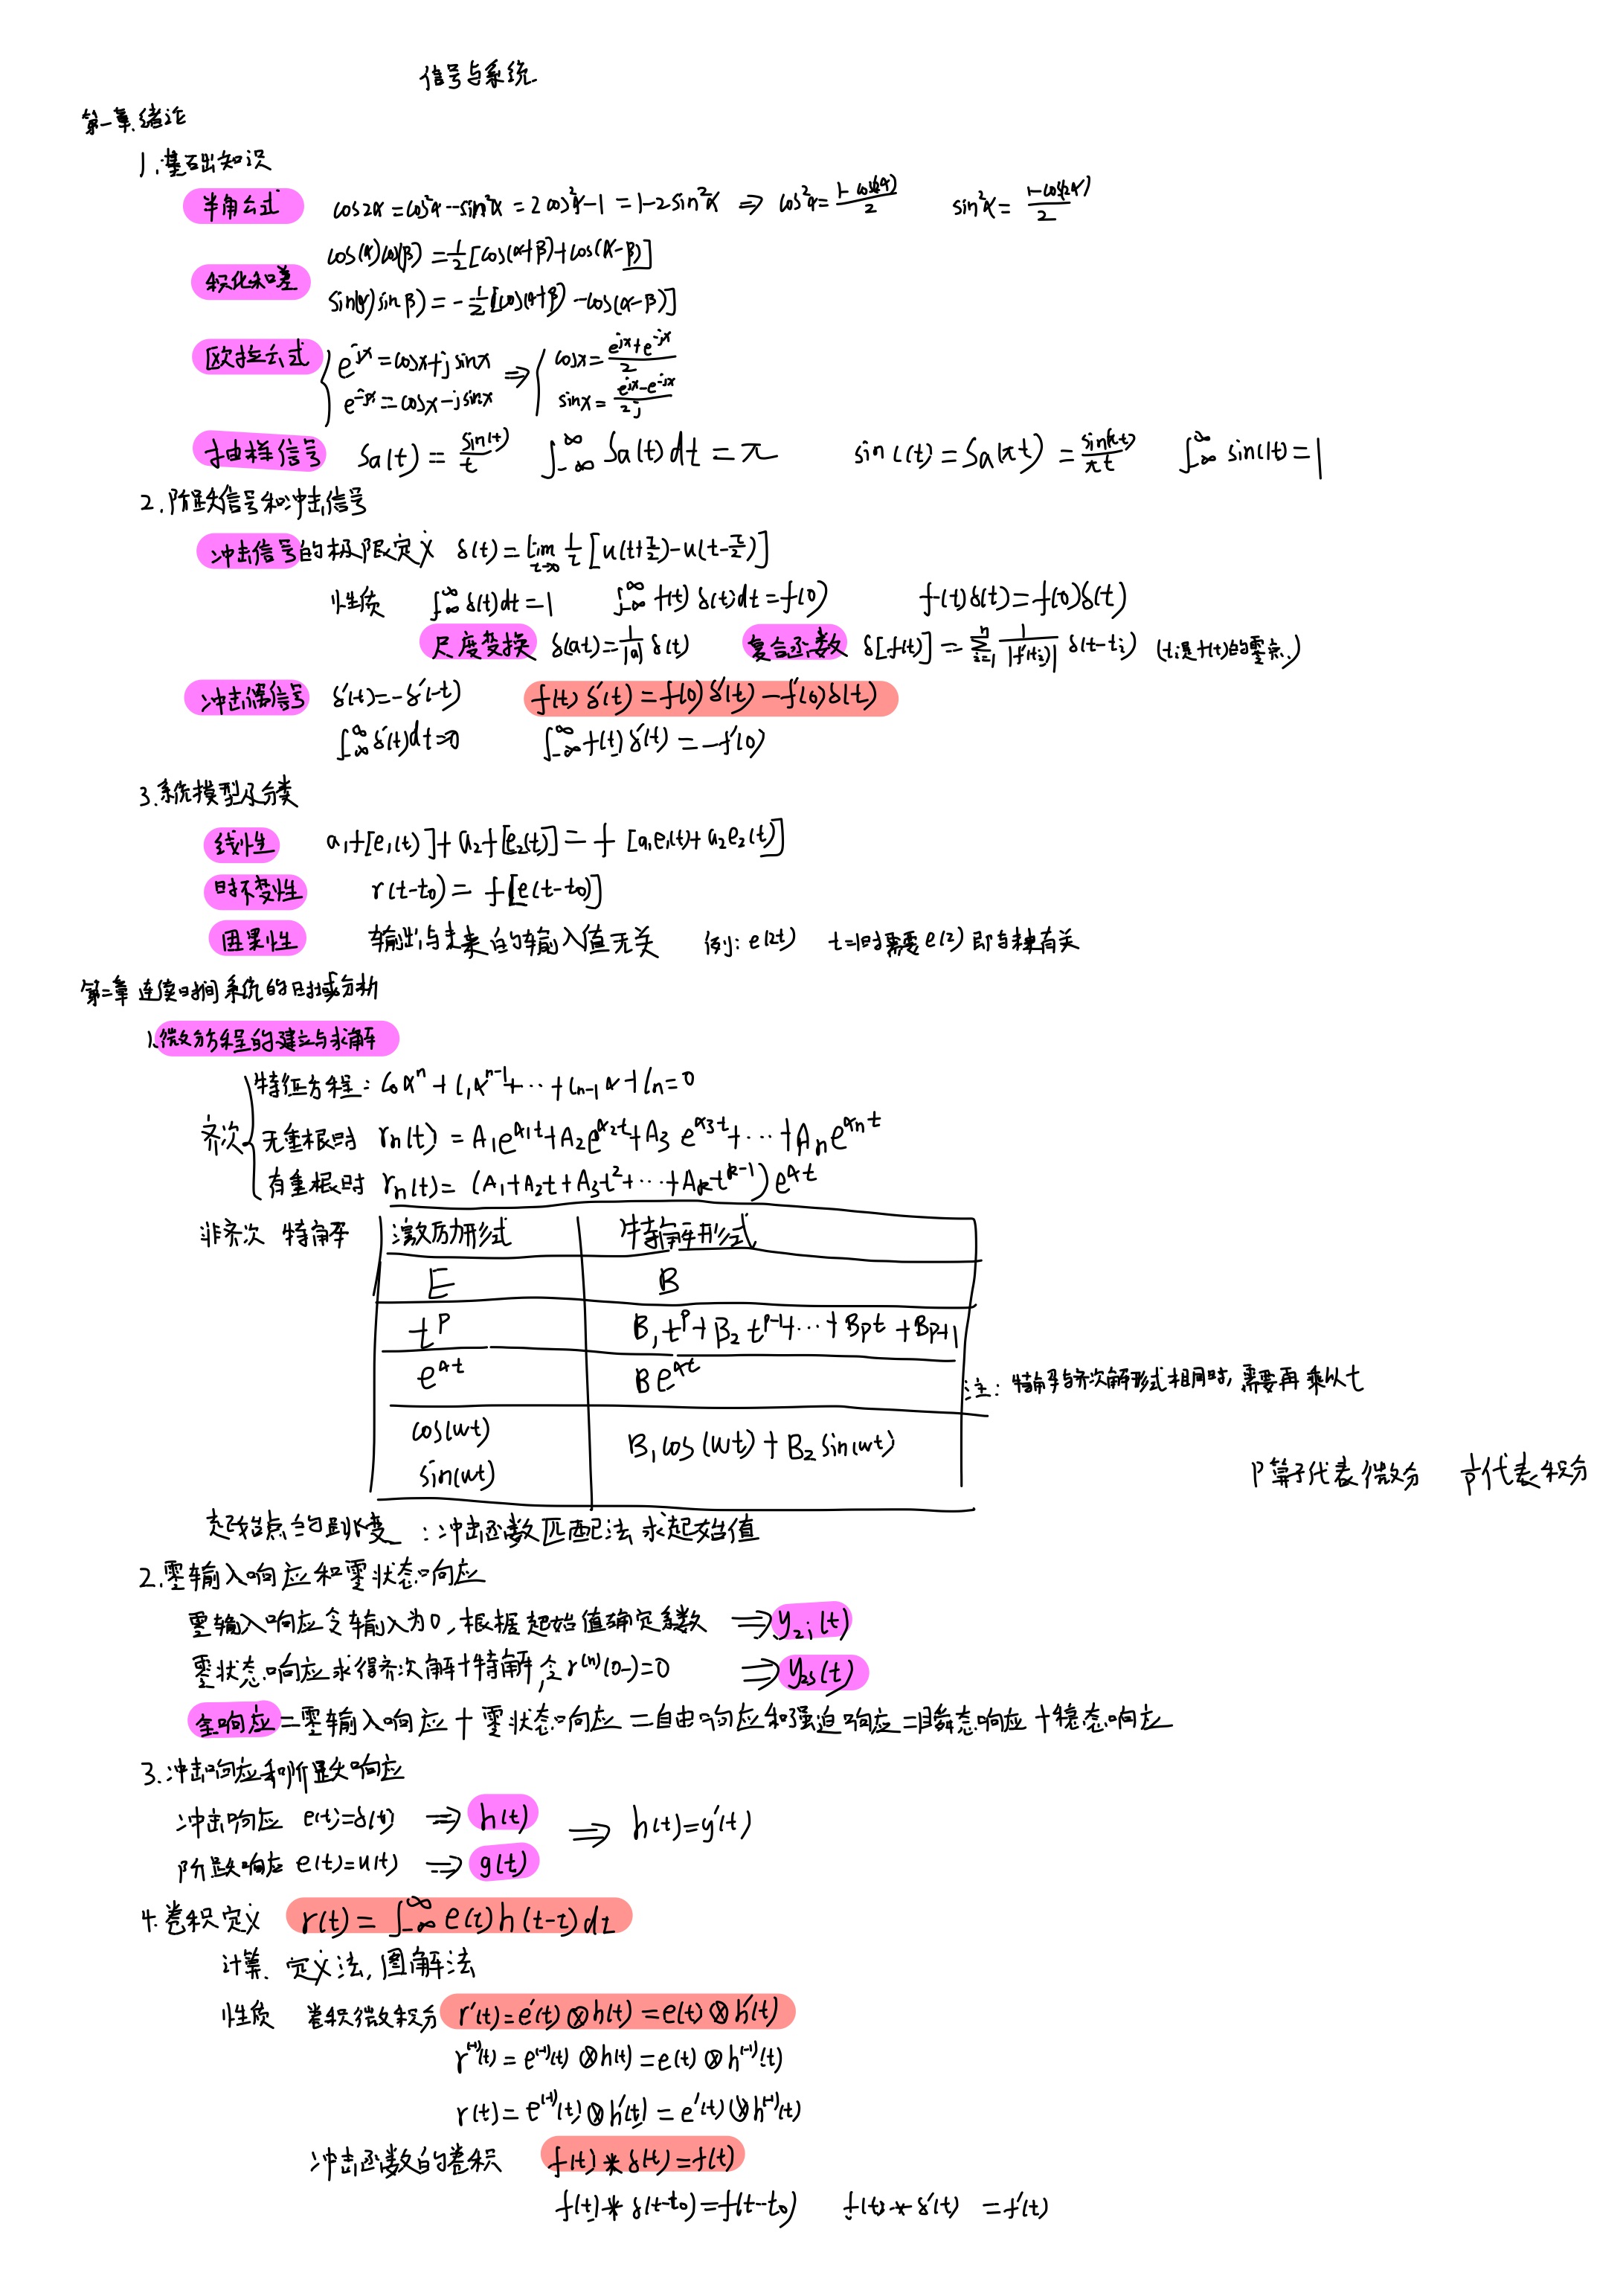 信号与系统
第一章.绪论
1.基础知识
半角公式 cos2α=cos²α-sin²α=2cos²α-1=1-2sin²α ⇒ cos²α=(1-cos(2α))/2 sin²α=(1-cos(2α))/2
积化和差 cos(α)cos(β)=1/2[cos(α+β)+cos(α-β)]
sin(α)sin(β)=-1/2[cos(α+β)-cos(α-β)]
欧拉公式 { e^jx=cosx+jsinx ⇒ { cosx=(e^jx+e^-jx)/2
e^-jx=cosx-jsinx sinx=(e^jx-e^-jx)/2j
抽样信号 Sa(t)=sin(t)/t ∫_-∞^∞ Sa(t)dt=π sinc(t)=Sa(πt)=sin(πt)/πt ∫_-∞^∞ sinc(t)=1
2.阶跃信号和冲击信号
冲击信号的极限定义 δ(t)=lim_τ→0 1/τ[u(t+τ/2)-u(t-τ/2)]
性质 ∫_-∞^∞ δ(t)dt=1 ∫_-∞^∞ f(t)δ(t)dt=f(0) f(t)δ(t)=f(0)δ(t)
尺度变换 δ(at)=1/|a| δ(t) 复合函数 δ[f(t)]=∑_i=1^n 1/|f'(ti)| δ(t-ti) (ti是f(t)的零点)
冲击偶信号 δ'(t)=-δ'(-t) f(t)δ'(t)=f(0)δ'(t)-f'(0)δ(t)
∫_-∞^∞ δ'(t)dt=0 ∫_-∞^∞ f(t)δ'(t)=-f'(0)
3.系统模型及分类
线性 a₁f[e₁(t)]+a₂f[e₂(t)]=f[a₁e₁(t)+a₂e₂(t)]
时不变性 r(t-t₀)=f[e(t-t₀)]
因果性 输出与未来的输入值无关 例:e(2t) t=1时需要e(2)即与未来有关
第二章 连续时间系统的时域分析
1.微分方程的建立与求解
齐次 { 特征方程:C₀αⁿ+C₁αⁿ⁻¹+…+Cn-1α+Cn=0
无重根时 rn(t)=A₁e^α₁t+A₂e^α₂t+A₃e^α₃t+…+Ane^αnt
有重根时 rn(t)=(A₁+A₂t+A₃t²+…+Akt^k-1)e^αt
非齐次 特解 激励形式 特解形式
E B
t^p B₁t^p+B₂t^p-1+…+Bpt+Bp+1
e^αt Be^αt
注:特解与齐次解形式相同时,需要再乘以t
cos(wt)
sin(wt) B₁cos(wt)+B₂sin(wt)
P算子代表微分 1/p代表积分
起始点的跳变:冲击函数匹配法求起始值
2.零输入响应和零状态响应
零输入响应令输入为0,根据起始值确定系数 ⇒ yzi(t)
零状态响应求得齐次解+特解,令r⁽ⁿ⁾(0-)=0 ⇒ yzs(t)
全响应=零输入响应+零状态响应=自由响应和强迫响应=瞬态响应+稳态响应
3.冲击响应和阶跃响应
冲击响应 e(t)=δ(t) ⇒ h(t) ⇒ h(t)=g'(t)
阶跃响应 e(t)=u(t) ⇒ g(t)
4.卷积定义 r(t)=∫_-∞^∞ e(τ)h(t-τ)dτ
计算. 定义法,图解法
性质 卷积微积分 r'(t)=e'(t)⊗h(t)=e(t)⊗h'(t)
r⁽⁻¹⁾(t)=e⁽⁻¹⁾(t)⊗h(t)=e(t)⊗h⁽⁻¹⁾(t)
r(t)=e⁽⁻¹⁾(t)⊗h'(t)=e'(t)⊗h⁽⁻¹⁾(t)
冲击函数的卷积 f(t)*δ(t)=f(t)
f(t)*δ(t-t₀)=f(t-t₀) f(t)*δ'(t)=f'(t)